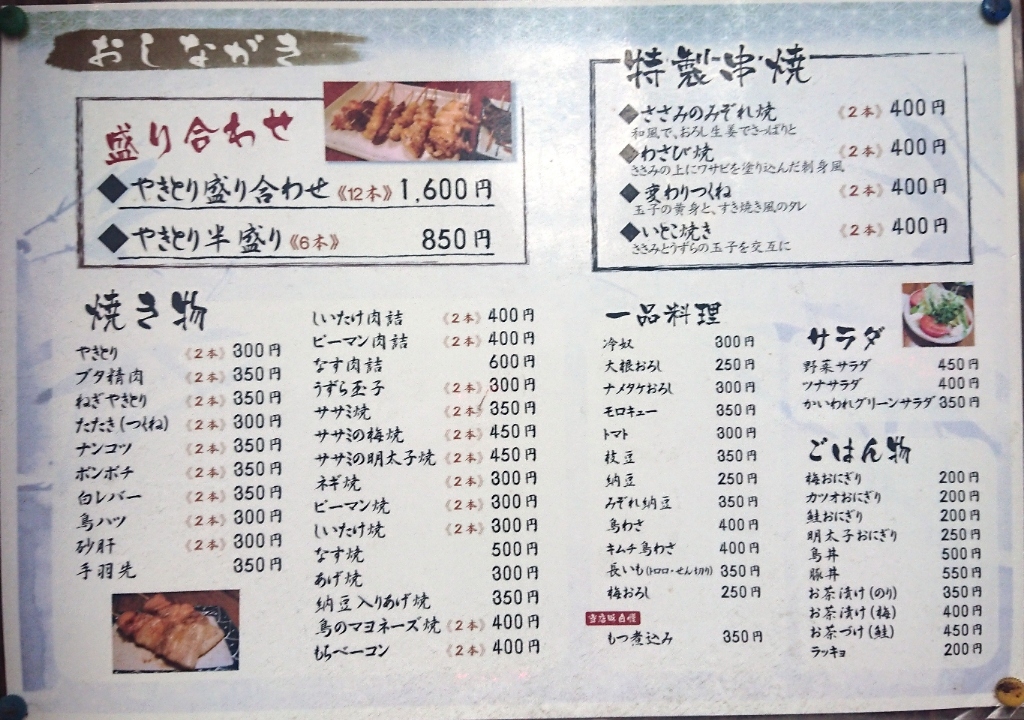 おしながき
盛り合わせ
◆やきとり盛り合わせ《12本》1,600円
◆やきとり半盛り《6本》 850円
特製串焼
◆ささみのみぞれ焼 《2本》400円
和風で、おろし生姜でさっぱりと
◆わさび焼 《2本》400円
ささみの上にワサビを塗り込んだ刺身風
◆変わりつくね 《2本》400円
玉子の黄身と、すき焼き風のタレ
◆いとこ焼き 《2本》400円
ささみとうずらの玉子を交互に
焼き物
やきとり 《2本》300円
ブタ精肉 《2本》350円
ねぎやきとり 《2本》350円
たたき(つくね) 《2本》300円
ナンコツ 《2本》350円
ボンボチ 《2本》350円
白レバー 《2本》350円
鳥ハツ 《2本》300円
砂肝 《2本》300円
手羽先 350円
しいたけ肉詰 《2本》400円
ピーマン肉詰 《2本》400円
なす肉詰 600円
うずら玉子 《2本》300円
ササミ焼 《2本》350円
ササミの梅焼 《2本》450円
ササミの明太子焼 《2本》450円
ネギ焼 《2本》300円
ピーマン焼 《2本》300円
しいたけ焼 《2本》300円
なす焼 500円
あげ焼 300円
納豆入りあげ焼 350円
鳥のマヨネーズ焼《2本》400円
もちベーコン 《2本》400円
一品料理
冷奴 300円
大根おろし 250円
ナメタケおろし 300円
モロキュー 350円
トマト 300円
枝豆 350円
納豆 250円
みぞれ納豆 350円
鳥わさ 400円
キムチ鳥わさ 400円
長いも(トロロ・せん切り) 350円
梅おろし 250円
当店味自慢
もつ煮込み 350円
サラダ
野菜サラダ 450円
ツナサラダ 400円
かいわれグリーンサラダ 350円
ごはん物
梅おにぎり 200円
カツオおにぎり 200円
鮭おにぎり 200円
明太子おにぎり 250円
鳥丼 500円
豚丼 550円
お茶漬け(のり) 350円
お茶漬け(梅) 400円
お茶づけ(鮭) 450円
ラッキョ 200円